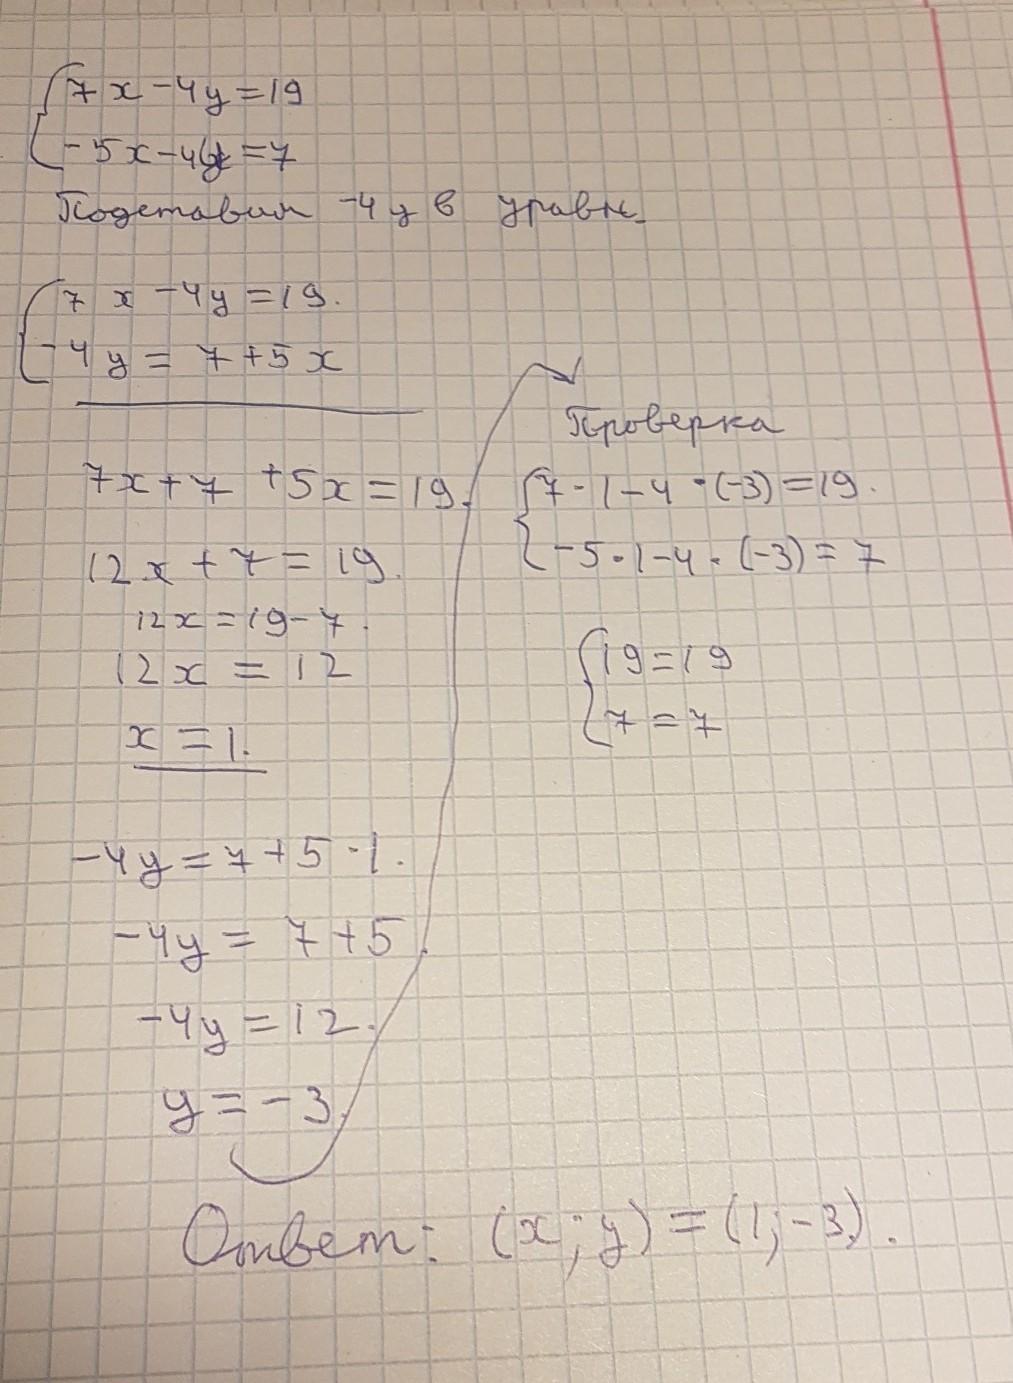 7x-4y=19
-5x-4y=7
Подставим -4y в уравн.
7x-4y=19.
-4y=7+5x
7x+7+5x=19.
12x+7=19.
12x=19-7.
12x=12
x=1.
-4y=7+5·1.
-4y=7+5.
-4y=12.
y=-3.
Проверка
7·1-4·(-3)=19.
-5·1-4·(-3)=7
19=19
7=7
Ответ: (x;y)=(1;-3).